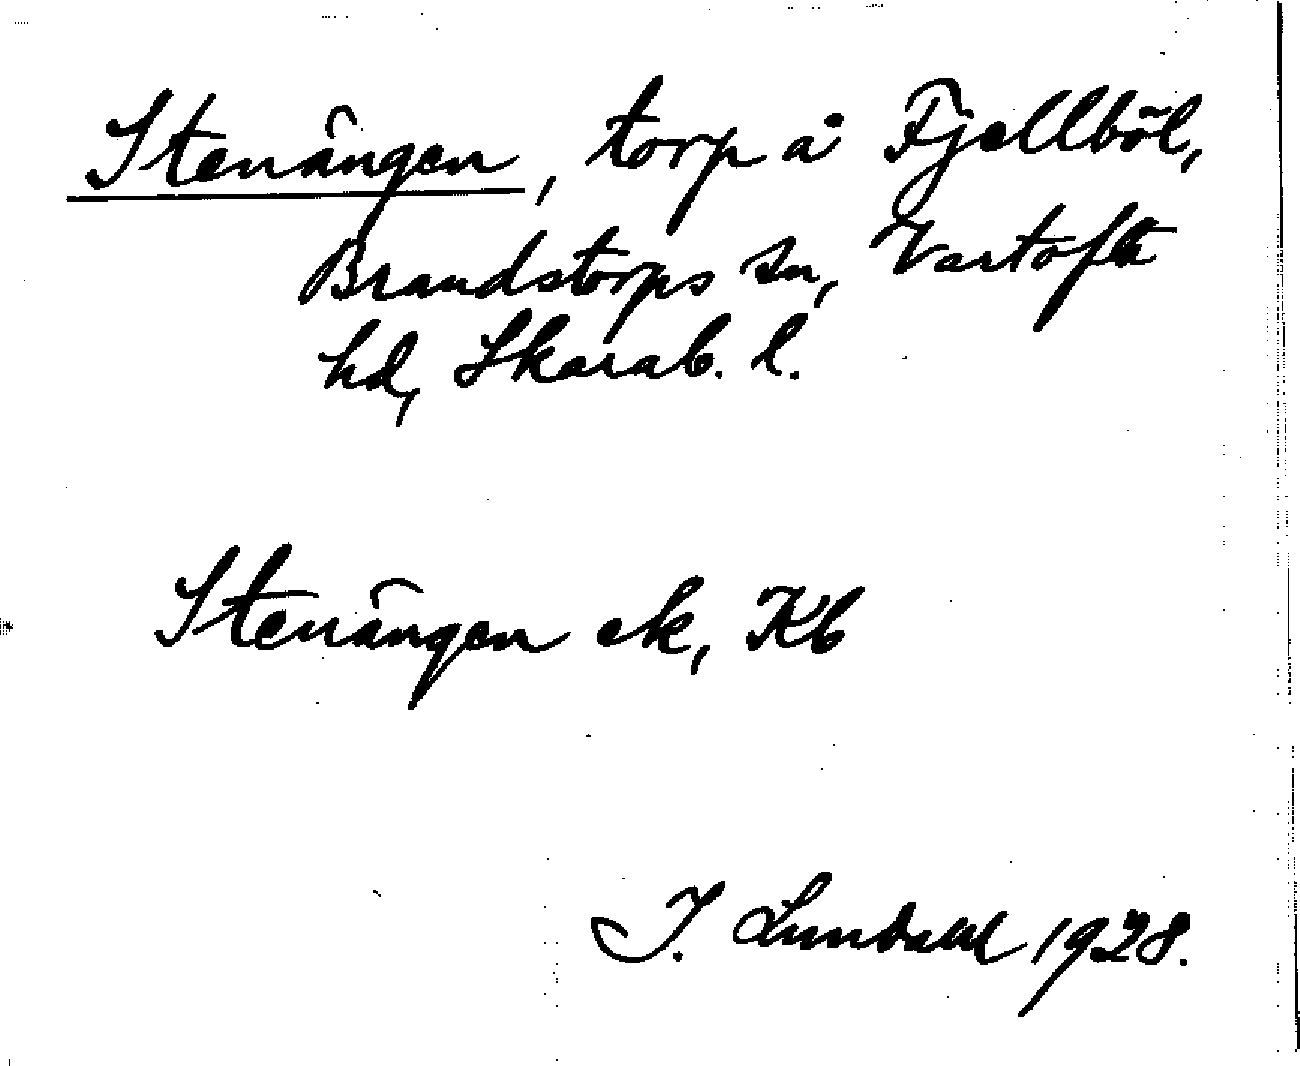 Stenängen, torp å Fjellböl,
Brandstorps sn, Vartofta
hd, Skarab. l.
Stenängen ek, Kb
I. Lundahl 1928.